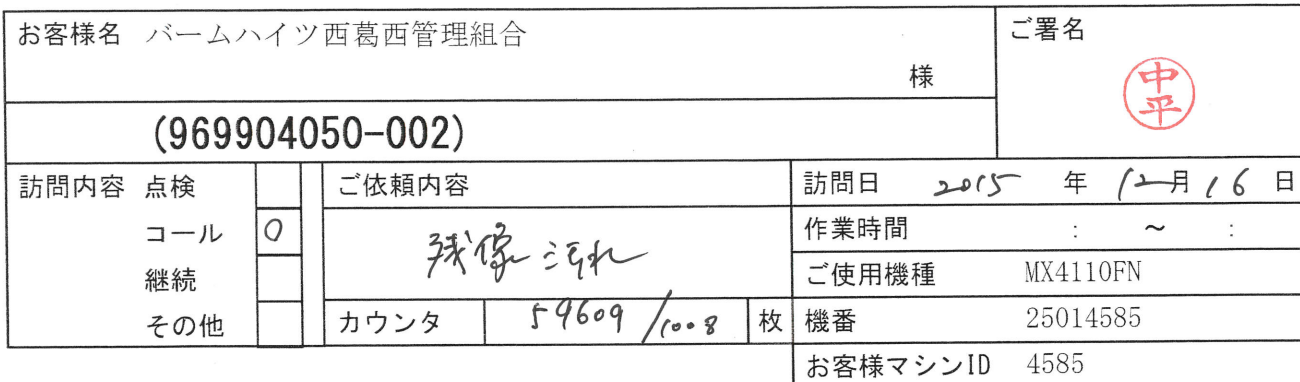 お客様名 バームハイツ西葛西管理組合
様
ご署名
中平
(969904050-002)
訪問内容 点検
コール 〇
継続
その他
ご依頼内容
残像 汚れ
カウンタ 59609/1008 枚
訪問日 2015 年 12月 16 日
作業時間 : ~ :
ご使用機種 MX4110FN
機番 25014585
お客様マシンID 4585